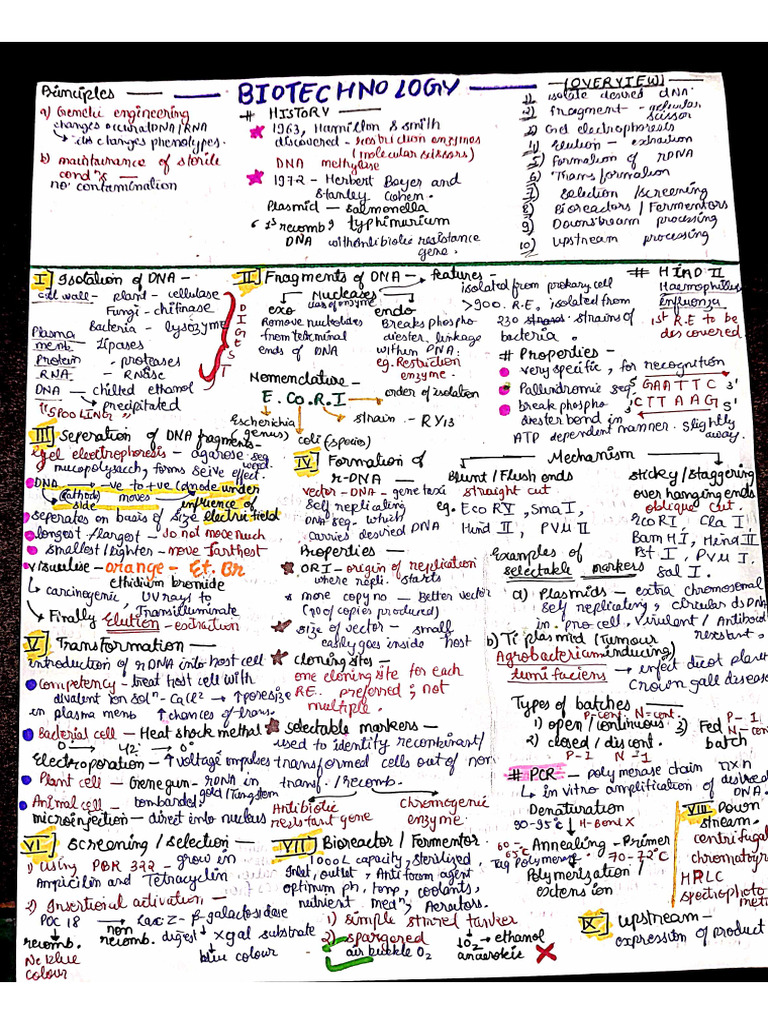 Principles
a) Genetic engineering
changes occur in DNA/RNA
↳ its changes phenotypes.
b) maintainance of sterile
condns —
no contamination
BIOTECHNOLOGY
# HISTORY —
1963, Hamillon & smith
discovered - restriction enzymes
(molecular scissors)
DNA methylase
1972 - Herbert Boyer and
Stanley Cohen.
Plasmid — salmonella
typhimurium
1st recomb
DNA with antibiotic resistance
gene.
(OVERVIEW)
1) isolate desired DNA.
2) Fragment - molecular
scissor
3) Gel electrophoresis
4) Elution - extraction
5) Formation of rDNA
6) Transformation
7) Selection /screening
8) Bioreactors / Fermentors
9) Downstream processing
10) upstream processing
I Isolation of DNA -
cell wall - plant - cellulase
Fungi - chitinase
Bacteria - lysozyme
Plasma
memb. - Lipases
Protein - proteases
RNA - RNase
DNA - chilled ethanol
↳ precipitated
"SPOOLING"
DIGEST
II Fragments of DNA — features -
Nucleases
class of enzyme
exo
Remove nucleotides
from terminal
ends of DNA
endo
Breaks phospho
diester linkage
within DNA.
eg. Restriction
enzyme.
Nomenclature -
E.CO.R.I → order of isolation
Escherichia
(genus)
coli (species)
strain - RY13
isolated from prokary. cell
>900. R.E, isolated from
230 strains of
bacteria.
# Properties -
very specific, for recognition
Pallindromic seq. GAATTC 3'
CTTAAG 5'
break phospho
diester bond in
ATP dependent manner. slightly
away.
# HIND II
Haemophillus
influenza
1st R.E to be
discovered
III Seperation of DNA fragments-
gel electrophoresis - agarose seq
weed.
mucopolysacch, forms seive effect.
DNA → -ve to +ve (anode under
(cathode) moves → influence of
side electric field
seperates on basis of size
longest /largest - do not move much
smallest/lighter - move farthest
visualise - orange - Et. Br
↳ ethidium bromide
carcinogenic UV rays to
Transilluminate
↳ Finally Elution - extraction
IV Formation of
r-DNA —
vector - DNA - gene taxi
self replicating
DNA seq. which
carries desired DNA
Properties —
ORI - origin of replication
where repli. starts
more copy no - Better vector
(no of copies produced)
size of vector - small
easily goes inside host
cloning sites -
one cloning site for each
R.E. preferred ; not
multiple.
selectable markers —
used to identify recombinant/
transformed cells out of non
transf. /recomb.
Antibiotic
resistant gene
chromogenic
enzyme.
Mechanism
Blunt / Flush ends
straight cut
eg. Eco R V, Sma I,
Hind II, PVU II
sticky/staggering
over hanging ends
oblique cut.
Eco R I, Cla I,
Bam H I, Hind III
Pst I, PVU I
Sal I.
Examples of
selectable markers
a) Plasmids - extra chromosomal
self replicating, circular ds DNA
in pro. cell, virulent / Antibioti
resistant,
b) Ti plasmid (Tumour
inducing)
Agrobacterium
tumifaciens → infect dicot plants
Crown gall disease
Types of batches —
P-cont. N=cont.
1) open / continous
2) closed / discont.
P-1 N=1
3) Fed P-1
batch N=cont.
# PCR - polymerase chain rxn
↳ in vitro amplification of desired
DNA.
Denaturation
90-95°c ↓ H-Bond X
60-65°c
Annealing - Primer
Taq Polymerase 70-72°C
Polymerisation /
extension
V Transformation —
introduction of rDNA into host cell
Competency - treat host cell with
divalent ion soln - CaCl2 → ↑ pore size
in plasma memb ↑ chances of trans.
Bacterial cell - Heat shock method
0° → 42° → 0°
Electroporation - ↑ voltage impulses
Plant cell - Gene gun - rDNA in
gold/tungstem
Animal cell - bombarded,
microinjection - direct into nucleus
VI screening / selection —
1) using PBR 322 - grow in
Ampicilin and Tetracyclin
2) Insertional activation -
POC 18 → Lac Z - β-galactosidase
recomb. non
recomb. digest → xgal substrate
↓
No blue
colour
blue colour
VII Bioreactor / Fermentor
1000L capacity, sterilised,
Inlet, outlet, Anti foam agent
optimum ph, temp, coolants,
nutrient medm, Aerators.
1) simple stirred tanker
2) spargered
air bubble O2
↓O2 → ethanol
anaerobic X
VIII Down
stream-
centrifugat
chromatogra
HRLC
spectrophoto
met
IX upstream -
expression of product